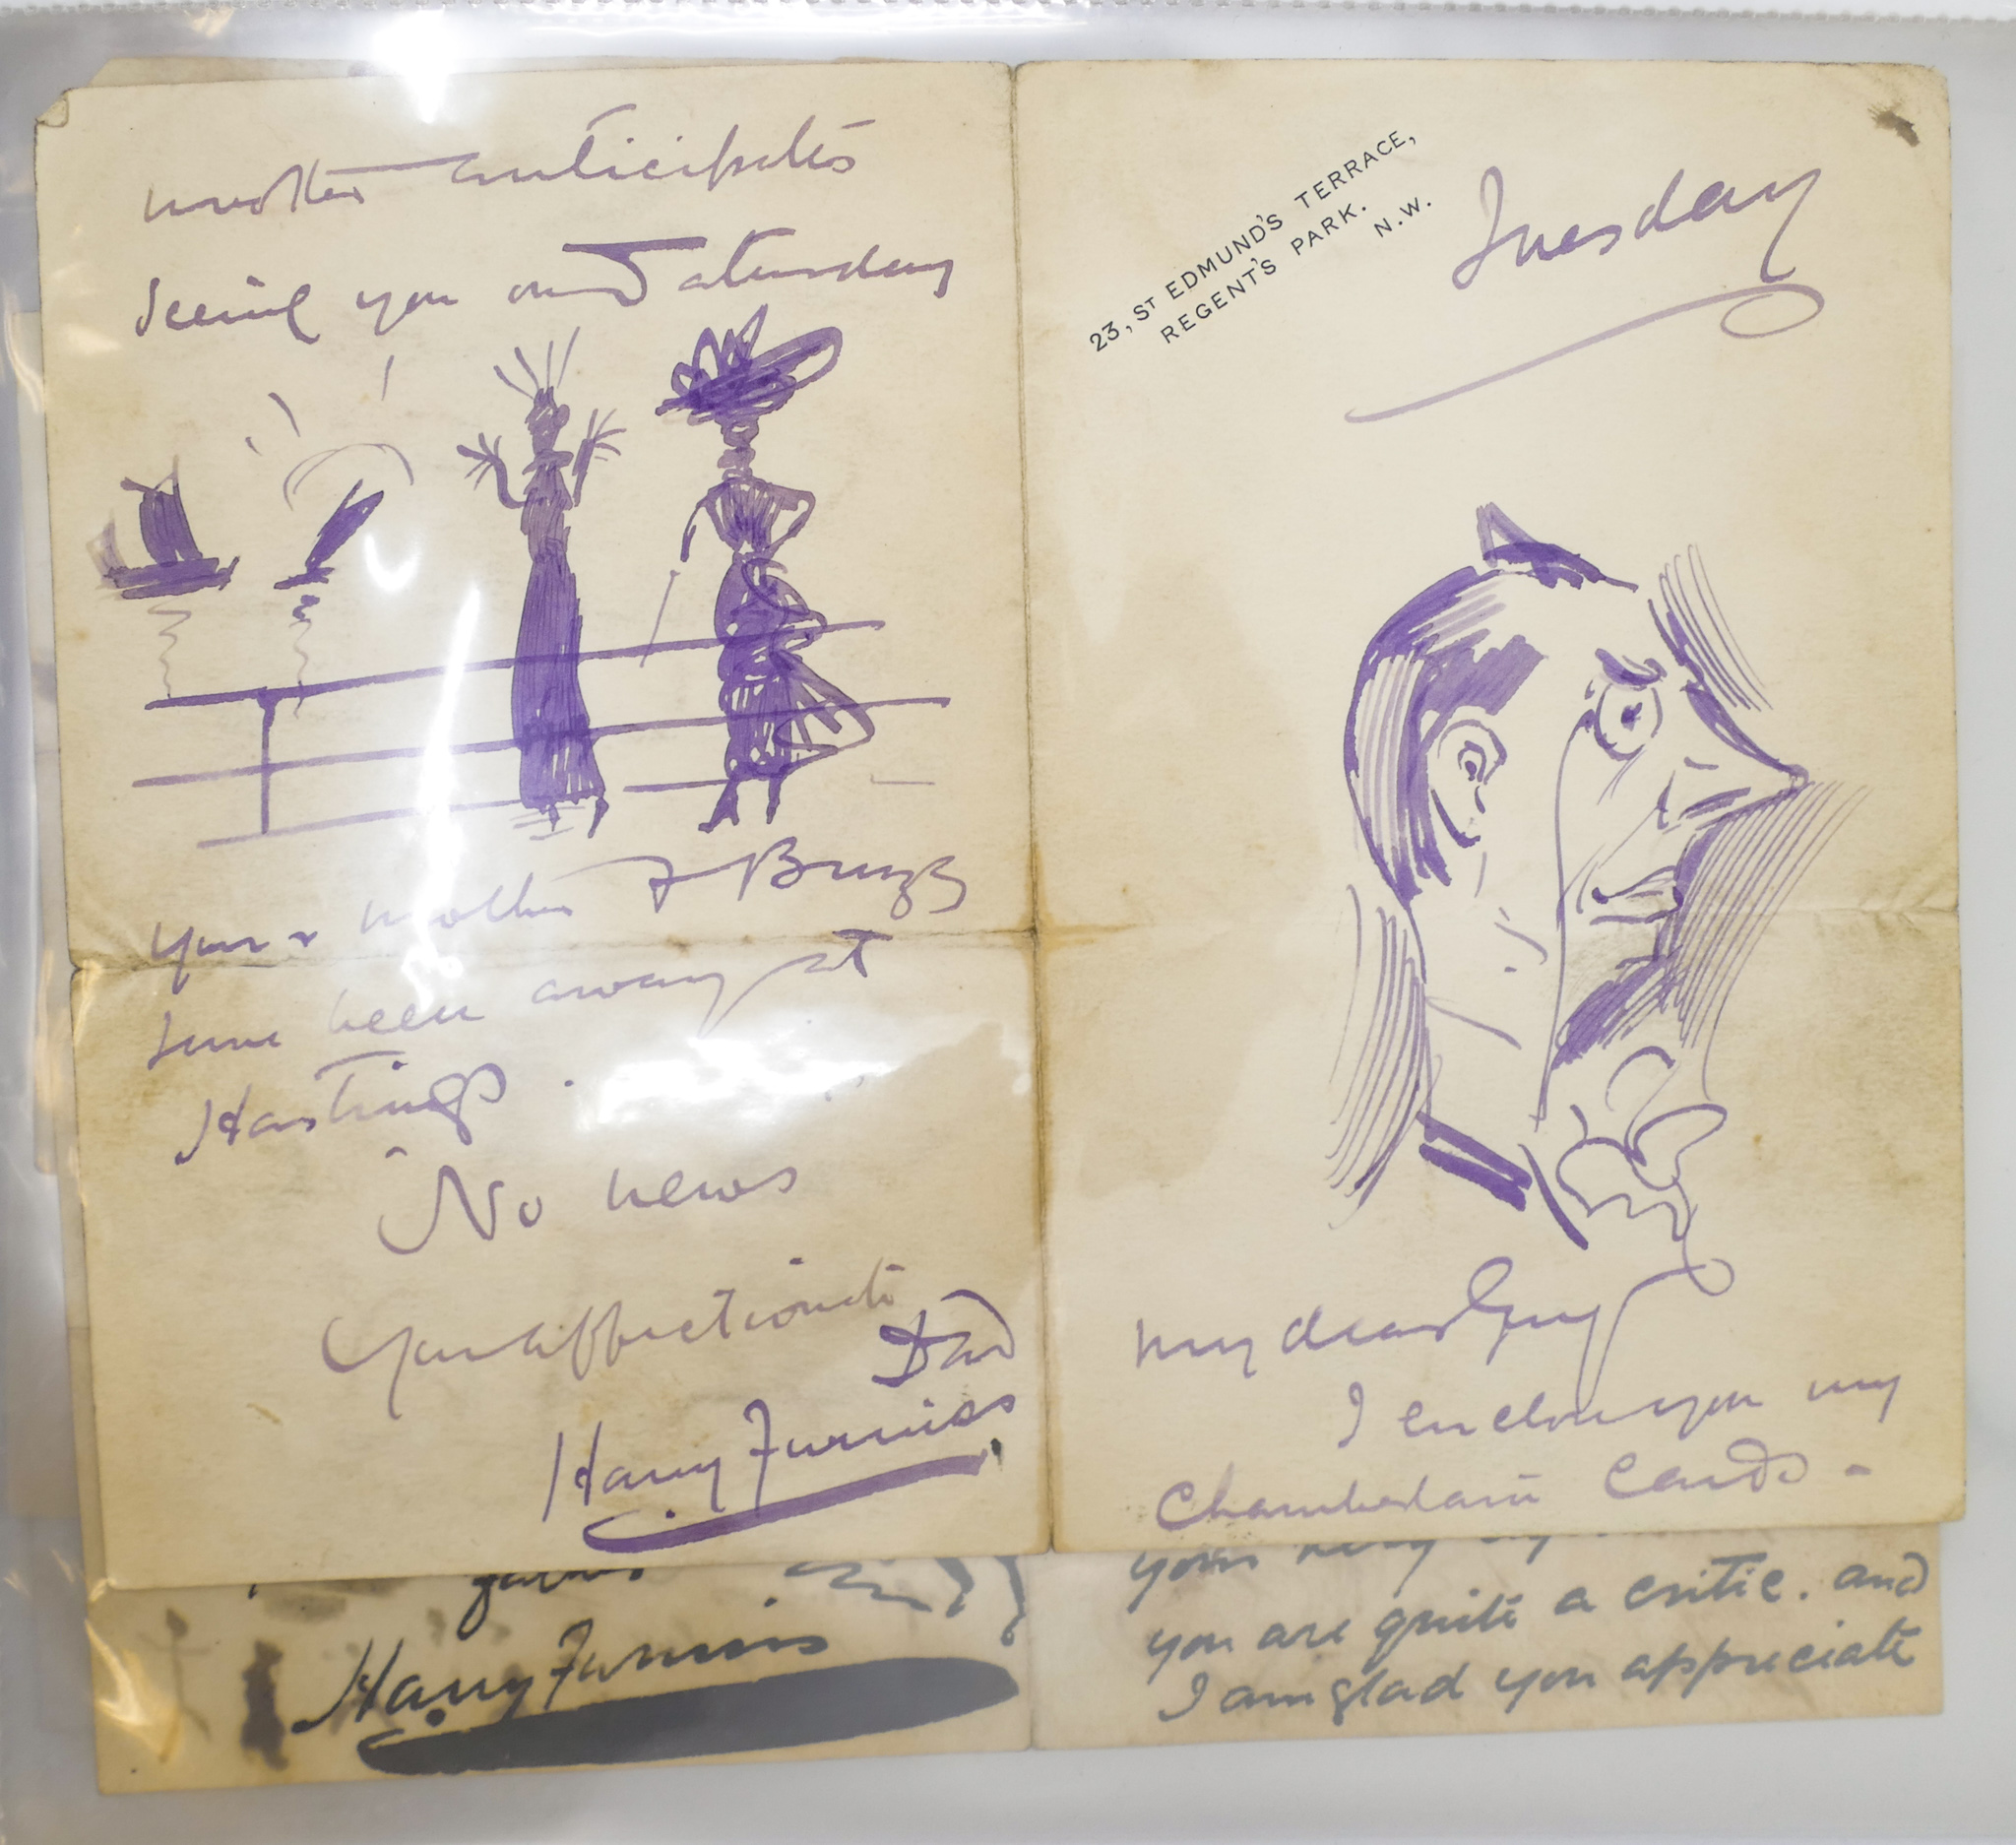 mother anticipates
seeing you on Saturday
Your mother &
have been away at
Hastings.
No news
Your affectionate
Dad
Harry Furniss
Harry Furniss
23, ST EDMUND'S TERRACE,
REGENT'S PARK.
N.W.
Tuesday
my dear Guy
I enclose you my
Chamberlain Cards -
you are quite a critic. and
I am glad you appreciate